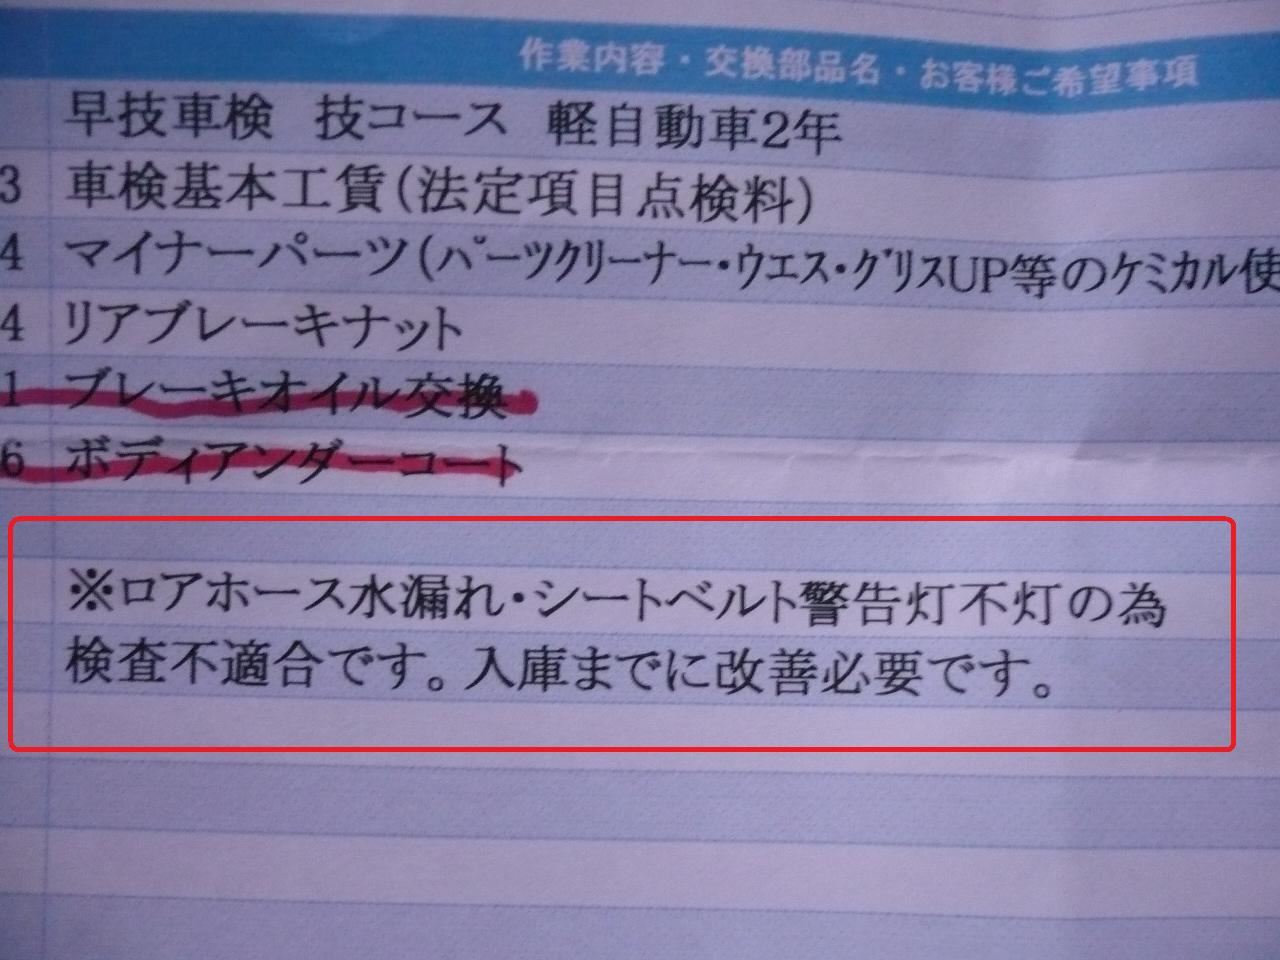 作業内容・交換部品名・お客様ご希望事項
早技車検 技コース 軽自動車2年
3 車検基本工賃(法定項目点検料)
4 マイナーパーツ(ﾊﾟｰﾂｸﾘｰﾅｰ・ｳｴｽ・ｸﾞﾘｽUP等のｹﾐｶﾙ使
4 リアブレーキナット
1 ブレーキオイル交換
6 ボディアンダーコート
※ロアホース水漏れ・シートベルト警告灯不灯の為
検査不適合です。入庫までに改善必要です。